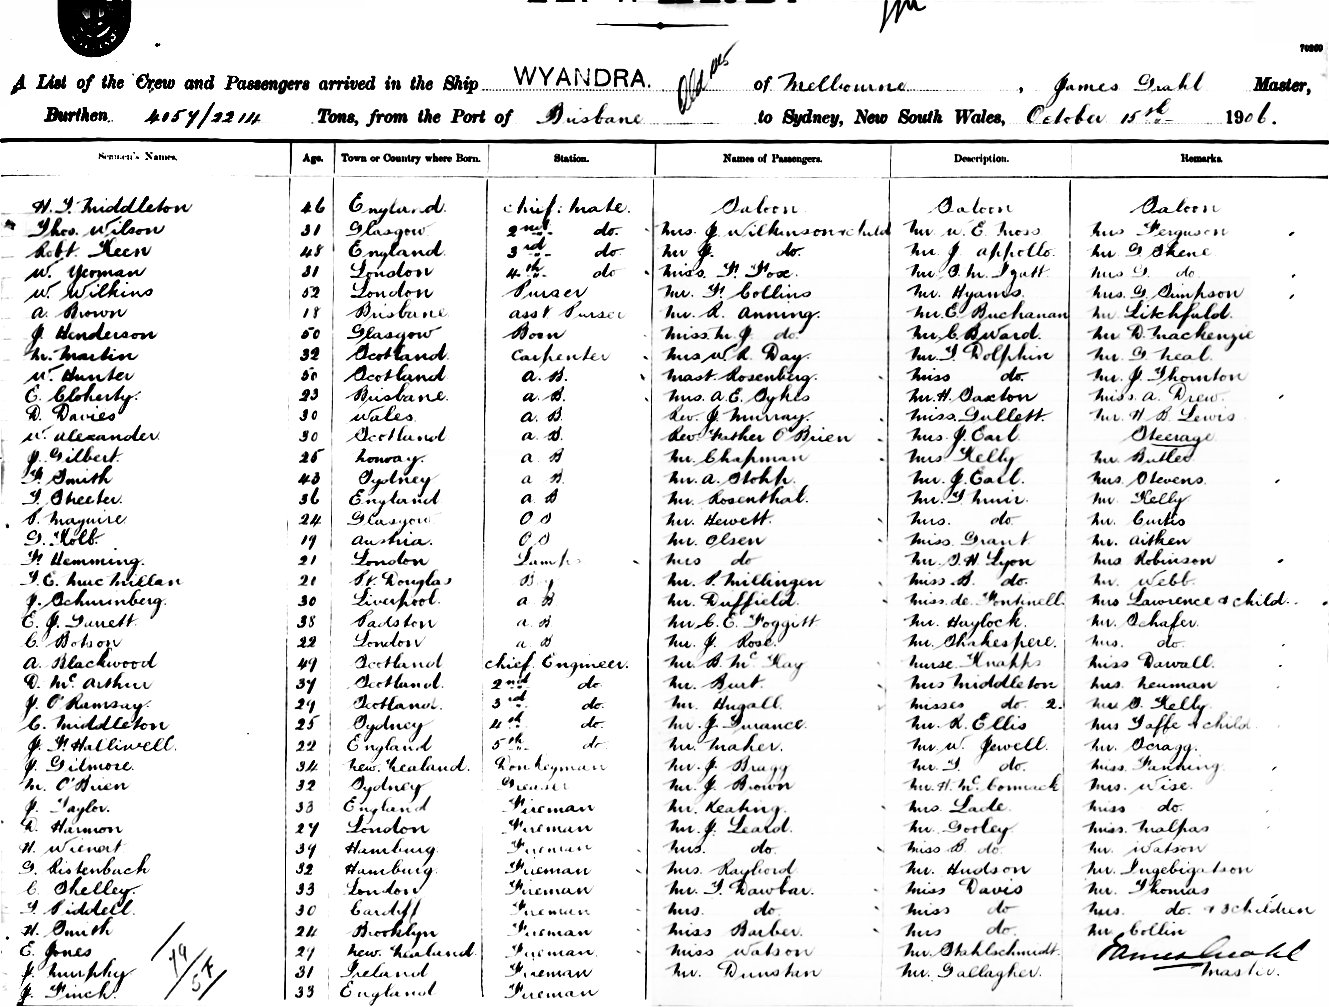 70269
A List of the Crew and Passengers arrived in the Ship WYANDRA. of Melbourne, James Grahl Master,
Burthen 4057/2214 Tons, from the Port of Brisbane to Sydney, New South Wales, October 15th 1906.
Seamen's Names. Age. Town or Country where Born. Station. Names of Passengers. Description. Remarks.
H. F. Middleton 46 England. Chief: Mate. Saloon Saloon Saloon
Thos. Wilson 31 Glasgow 2nd do. Mrs. J. Wilkinson & child Mr W. E. Moss Mrs Ferguson
Robt. Keen 48 England. 3rd do. Mr J. do. Mr J. Appollo. Mr G Skene
W. Yeoman 31 London 4th do Miss. F. Fox. Mr. Mrs G. do.
W. Wilkins 52 London Purser Mr. F. Collins Mr. Hyams. Mrs. G. Simpson
A. Brown 18 Brisbane asst Purser Mr. R. Anning. Mr. E. Buchanan Mr. Litchfield.
J. Henderson 50 Glasgow Bosn Miss. M. J. do. Mr. C. B. Ward. Mr D. Mackenzie
M. Martin 32 Scotland. Carpenter Mrs W. R. Day. Mr. F Dolphin Mr. G Neal.
W. Hunter 50 Scotland A. B. Mast. Rosenberg. Miss do. Mr. J. Thornton
E. Cloherty. 23 Brisbane. A. B. Mrs. A. E. Sykes Mr. H. Saxton Miss. A. Drew.
D. Davies 30 Wales. A. B. Rev. J. Murray. Miss. Gullett. Mr. H. B. Lewis
W. Alexander 30 Scotland A. B. Rev. Father O'Brien Mrs. J. Earl. Steerage
J. Gilbert. 25 Norway. A. B. Mr. Chapman Mrs Kelly Mr Butler
F. Smith 43 Sydney A. B. Mr. A. Mr. J. Earl. Mrs. Stevens.
36 England A B Mr. Rosenthal. Mr. F Muir. Mr. Kelly
P. Maguire 24 Glasgow O S Mr. Hewett. Mrs. do. Mr. Curtis
G. Kolb. 19 Austria. O S Mr. Olsen Miss. Grant Mr. Aitken
F. Hemming. 21 London Lamps Mrs do Mr. Lyon Mrs Robinson
F. E. MacMillan 21 Pt. Douglas Boy Mr. Miss. B. do. Mr. Webb.
J. Schurinberg. 30 Liverpool. A B Mr. Duffield. Miss. de. Fontinell. Mrs Lawrence & child.
E. J. Garrett. 38 Padston A B Mr. C. E. Foggitt Mr. Haylock. Mr. Schafer.
C. Botson 22 London A B Mr. J. Rose. Mr. Shakespere. Mrs. do.
A. Blackwood 49 Scotland Chief Engineer. Mr. B. McKay Nurse. Knapps Miss Darvall.
D. McArthur 37 Scotland. 2nd do. Mr. Burt. Mrs Middleton Mrs. Neuman
J. O'Ramsay. 29 Scotland. 3rd do. Mr. Hugall. Misses do. 2. Mrs Kelly.
C. Middleton 25 Sydney 4th do. Mr. J. Durance. Mr. R. Ellis Mrs Taffe & child
J. F. Halliwell. 22 England 5th do. Mr. Maher. Mr. W. Jewell. Mr. Scragg.
J. Gilmore. 34 New Zealand. Donkeyman Mr. J. Bragg Mr. F. do. Miss. Fanning.
M. O'Brien 32 Sydney Greaser Mr. J. Brown Mr. H. McCormack Mrs. Wise.
J. Taylor. 33 England Fireman Mr. Keating. Mrs. Lade. Miss do.
D. Harmon 27 London Fireman Mr. J. Leard. Mr. Gooley. Miss. Malpas
H. Wienert 39 Hamburg. Fireman Mrs. do. Miss B. do. Mr Watson
G. Ristenbach 32 Hamburg. Fireman Mrs. Mr. Hudson Mr.
C. Shelley. 33 London Fireman Mr. F. Dawbar. Miss Davis Mr. Thomas
F. Piddell. 30 Cardiff Fireman Mrs. do. Miss do Mrs. do. & 3 children
H. Smith 24 Brooklyn Fireman Miss Barber. Mrs do Mr Collin
E. Jones 27 New Zealand. Fireman. Miss Watson Mr. Stahlschmidt. James Grahl
J. Murphy 31 Ireland Fireman Mr. Dunstan Mr. Gallagher. Master.
J. Finch. 33 England Fireman